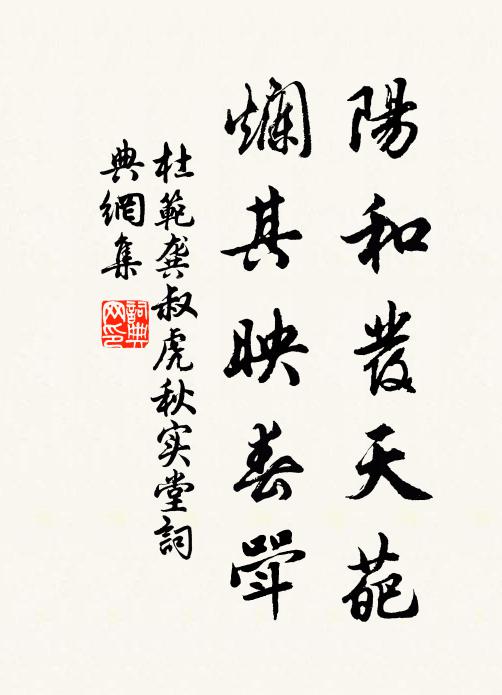 陽和發天葩
爛其映春斝
杜範龔叔虎秋实堂詞
典網集
詞典
网印